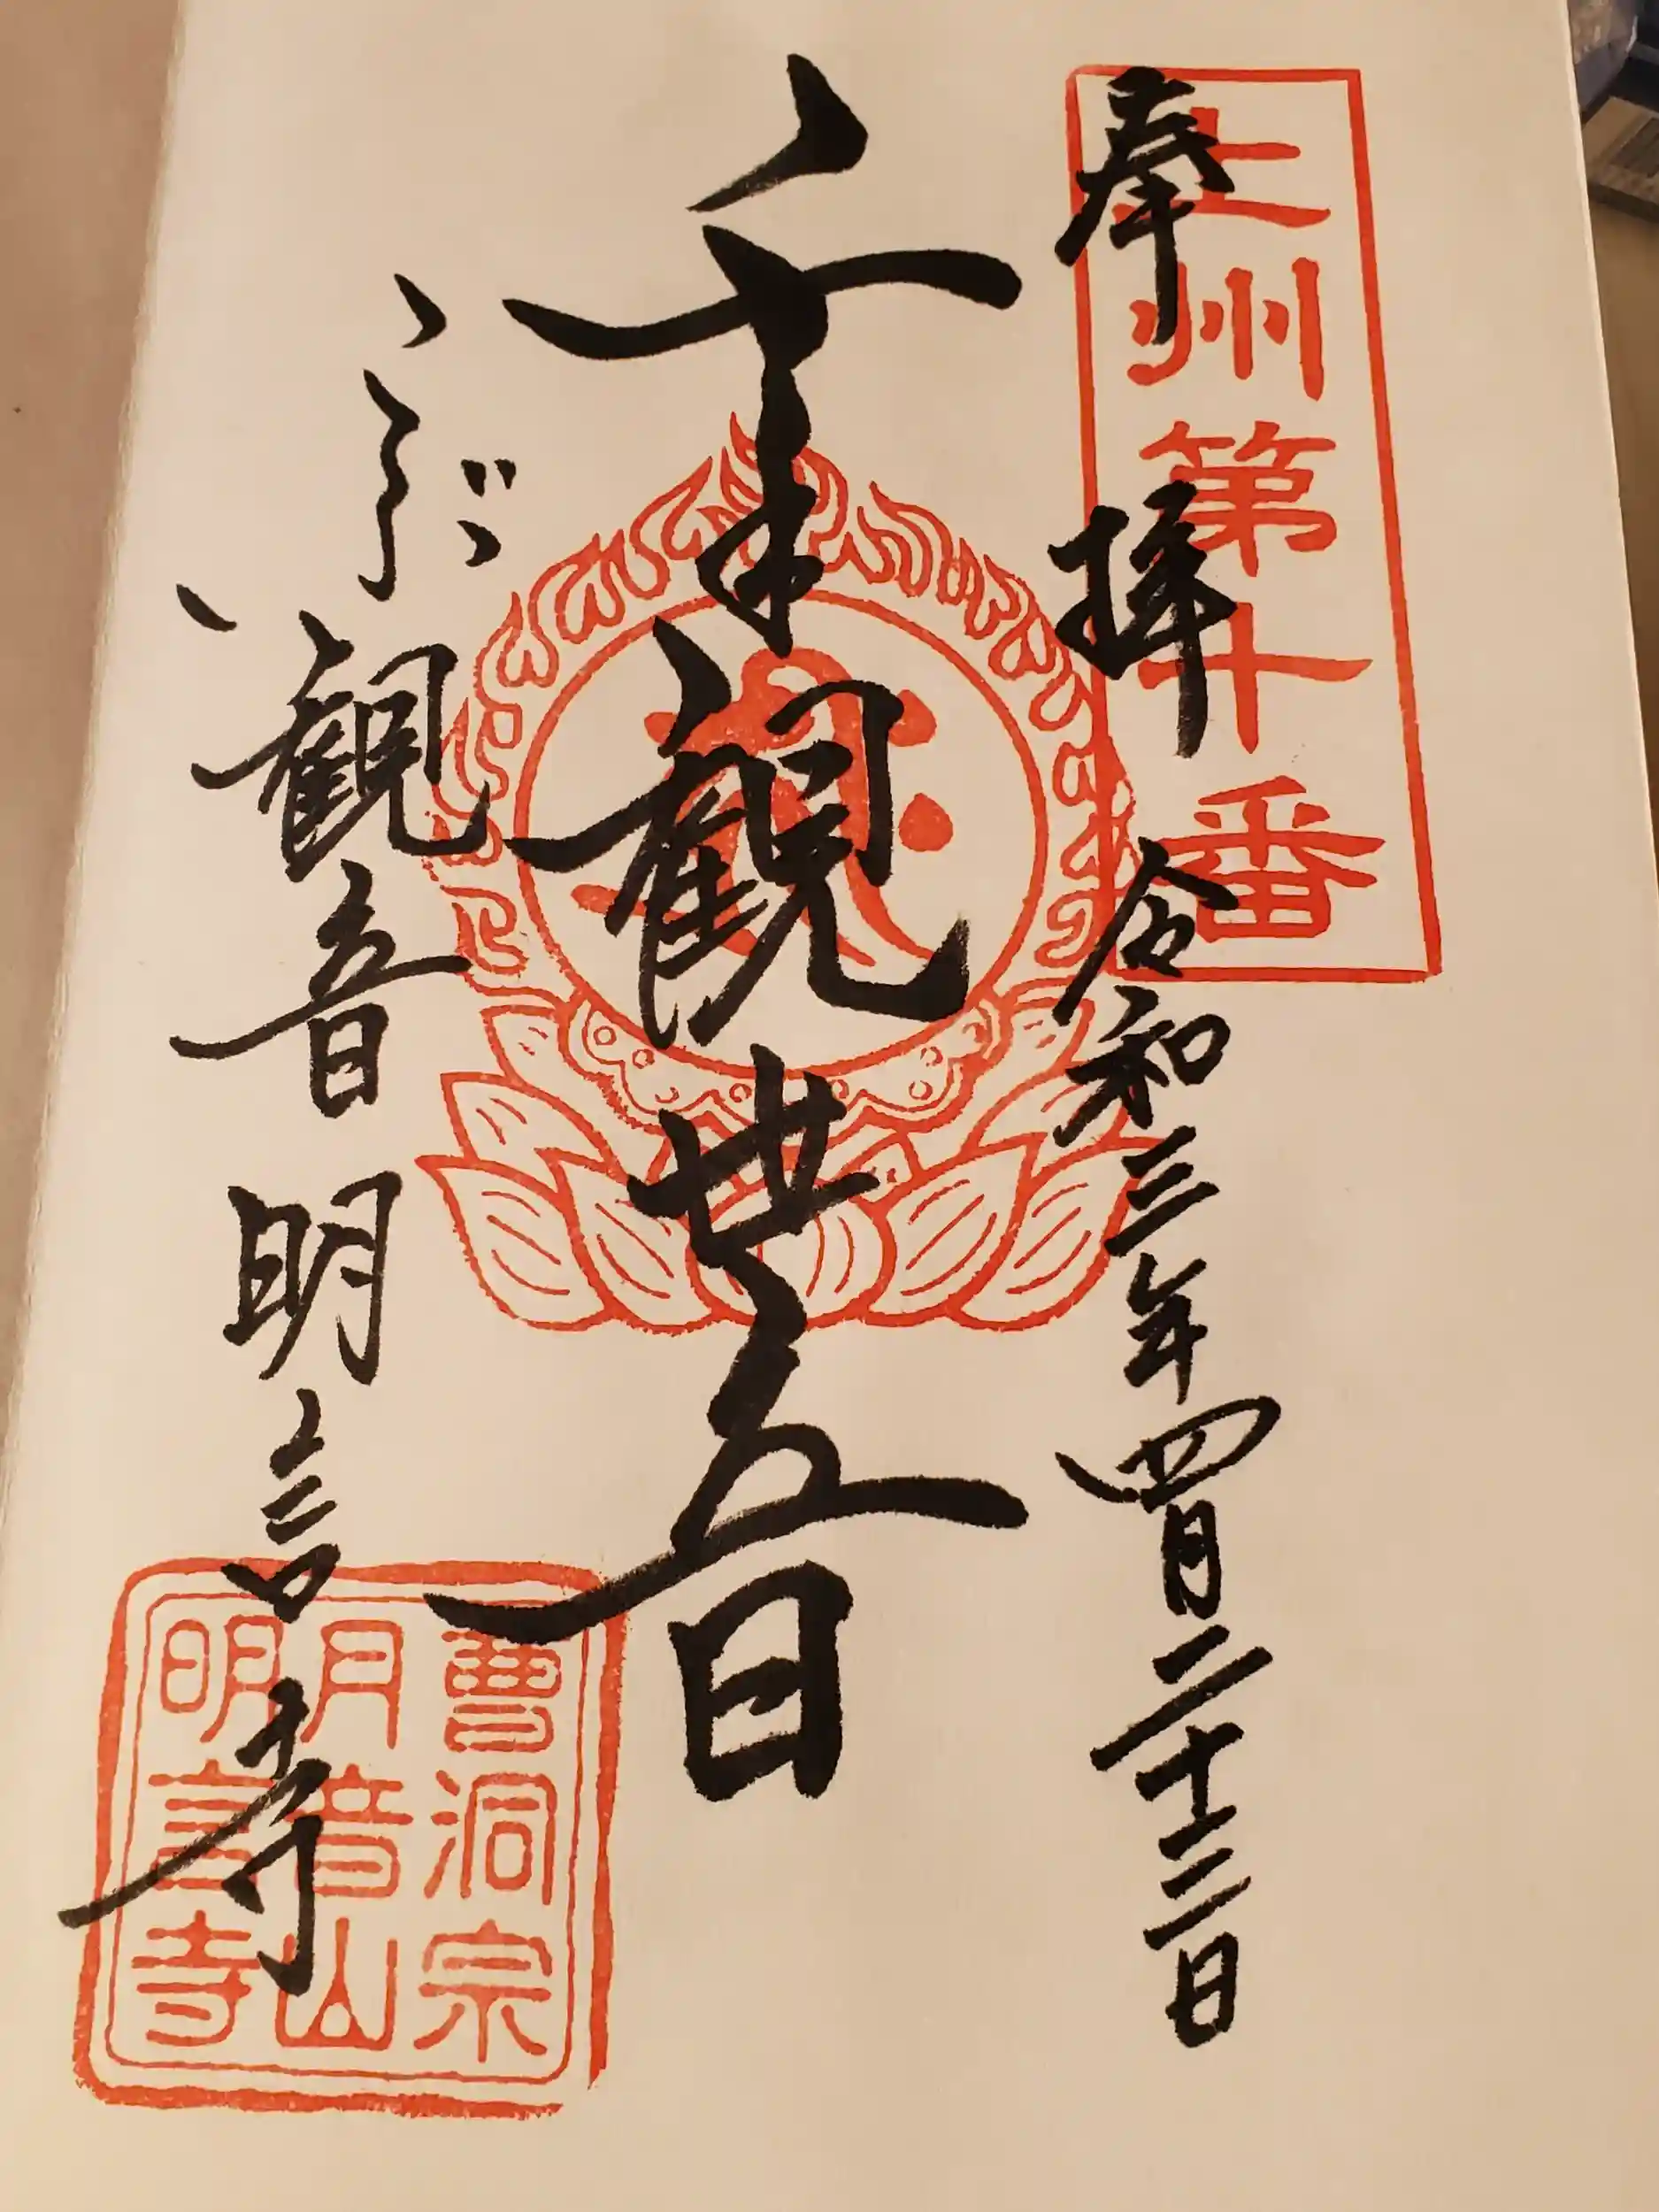 上州第十番
奉拝 令和三年四月二十三日
千手観世音
観音 明言寺
曹洞宗
月音山
明言寺